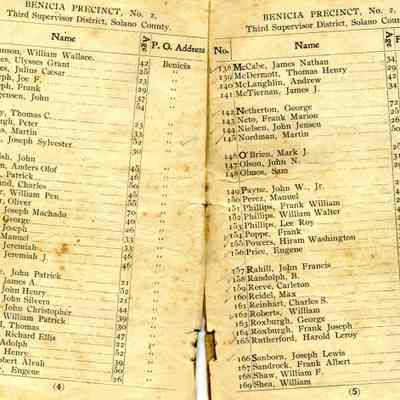 BENICIA PRECINCT, No. 2,
Third Supervisor District, Solano County.
Name Age P. O. Address
William Wallace. 42 Benicia
Ulysses Grant 25 "
Julius Cæsar 23 "
Joe F. 29 "
Frank 37 "
John 54 "
Thomas C.
Peter 23 "
Martin 33 "
Joseph Sylvester 52 "
John
Anders Olof 45 "
Patrick 46 "
Charles 50 "
William Pen 45 "
Oliver 55 "
Joseph Machado 70 "
George 40 "
Joseph 26 "
Manuel 33 "
Jeremiah 33 "
Jeremiah J. 46 "
John Patrick 22 "
James A. 21 "
John Henry 52 "
John Silvera 21 "
John Christopher 44 "
William Patrick 39 "
Thomas 30 "
Richard Ellis 47 "
Adolph 22 "
Henry 52 "
Robert Alvah 39 "
Eugene 50 "
26 "
(4)
BENICIA PRECINCT, No. 2,
Third Supervisor District, Solano County.
No. Name Age
138 McCabe, James Nathan 34
139 McDermott, Thomas Henry 29
140 McLaughlin, Andrew 42
141 McTiernan, James J. 34
142 Netherton, George 72
143 Neto, Frank Marion
144 Nielsen, John Jensen
145 Nordman, Martin
146 O'Brien, Mark J.
147 Olson, John N.
148 Olmos, Sam
149 Payne, John W., Jr.
150 Perez, Manuel
151 Phillips, Frank William
152 Phillips, William Walter
153 Phillips, Lee Roy
154 Poppe, Frank
155 Powers, Hiram Washington
156 Price, Eugene
157 Rahill, John Francis
158 Randolph, B.
159 Reeve, Carleton
160 Reidel, Max
161 Reinhart, Charles S.
162 Roberts, William
163 Roxburgh, George
164 Roxburgh, Frank Joseph
165 Rutherford, Harold Leroy
166 Sanborn, Joseph Lewis
167 Sandrock, Frank Albert
168 Shaw, William F.
169 Shea, William
(5)